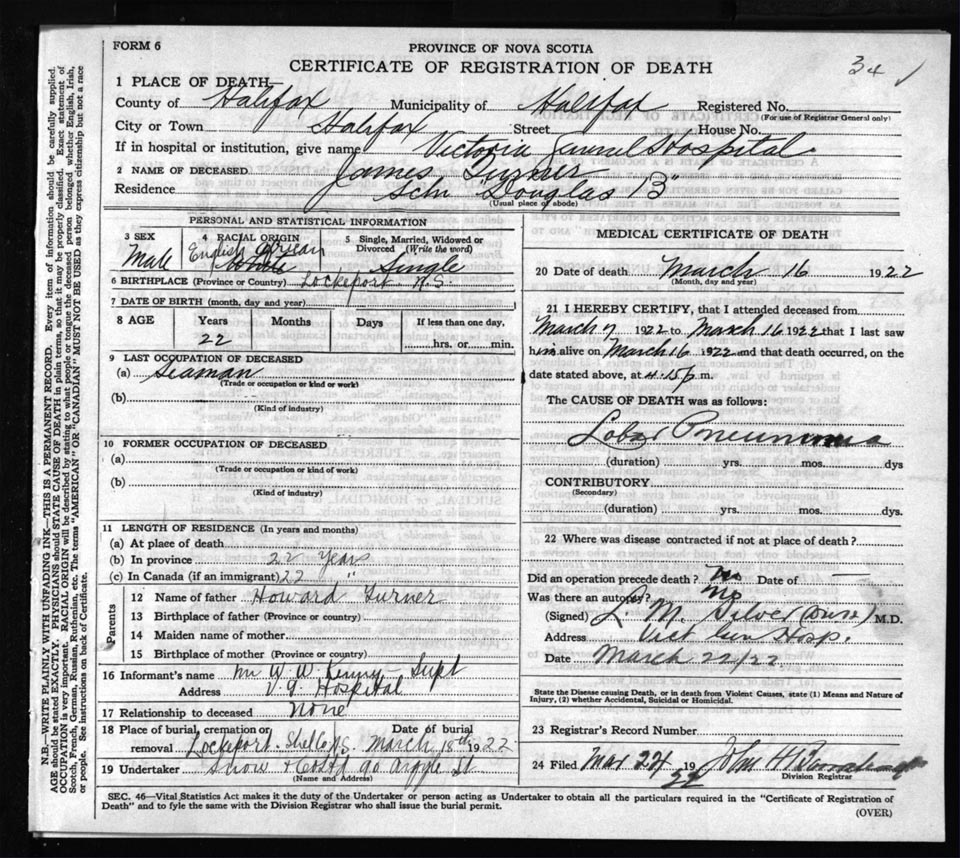 FORM 6
PROVINCE OF NOVA SCOTIA
CERTIFICATE OF REGISTRATION OF DEATH
34 ✓
1 PLACE OF DEATH—
County of Halifax Municipality of Halifax Registered No.
(For use of Registrar General only)
City or Town Halifax Street House No.
If in hospital or institution, give name Victoria General Hospital
2 NAME OF DECEASED James Turner
Residence Schr "Douglas B"
(Usual place of abode)
PERSONAL AND STATISTICAL INFORMATION
3 SEX Male
4 RACIAL ORIGIN English
5 Single, Married, Widowed or Divorced (Write the word) Single
6 BIRTHPLACE (Province or Country) Lockeport N.S.
7 DATE OF BIRTH (month, day and year)
8 AGE Years Months Days If less than one day,
22 hrs. or min.
9 LAST OCCUPATION OF DECEASED
(a) Seaman
(Trade or occupation or kind or work)
(b)
(Kind of industry)
10 FORMER OCCUPATION OF DECEASED
(a)
(Trade or occupation or kind of work)
(b)
(Kind of industry)
11 LENGTH OF RESIDENCE (In years and months)
(a) At place of death
(b) In province 22 Years
(c) In Canada (if an immigrant) 22 "
Parents
12 Name of father Howard Turner
13 Birthplace of father (Province or country)
14 Maiden name of mother
15 Birthplace of mother (Province or country)
16 Informant's name Mr W. W. Kenny - Supt
Address V. G. Hospital
17 Relationship to deceased None
18 Place of burial, cremation or removal Lockeport. Shelb N.S. Date of burial March 18th 1922
19 Undertaker Snow & Co Ltd 90 Argyle St
(Name and Address)
MEDICAL CERTIFICATE OF DEATH
20 Date of death March 16 1922
(Month, day and year)
21 I HEREBY CERTIFY, that I attended deceased from
March 7 1922 to March 16 1922 that I last saw
him alive on March 16 1922 and that death occurred, on the
date stated above, at 4.15 p. m.
The CAUSE OF DEATH was as follows:
Lobar Pneumonia
(duration) yrs. mos. dys
CONTRIBUTORY
(Secondary)
(duration) yrs. mos. dys.
22 Where was disease contracted if not at place of death?
Did an operation precede death? No Date of —
Was there an autopsy? No
(Signed) L. M. Silver M.D.
Address Vict Gen Hosp.
Date March 22/22
State the Disease causing Death, or in death from Violent Causes, state (1) Means and Nature of
Injury, (2) whether Accidental, Suicidal or Homicidal.
23 Registrar's Record Number
24 Filed Mar 24 1922 John H
Division Registrar
SEC. 46—Vital Statistics Act makes it the duty of the Undertaker or person acting as Undertaker to obtain all the particulars required in the "Certificate of Registration of
Death" and to fyle the same with the Division Registrar who shall issue the burial permit.
(OVER)
N.B.—WRITE PLAINLY WITH UNFADING INK—THIS IS A PERMANENT RECORD. Every item of information should be carefully supplied.
AGE should be stated EXACTLY. PHYSICIANS should STATE CAUSE OF DEATH in plain terms, so that it may be properly classified. Exact statement of
OCCUPATION is very important. RACIAL ORIGIN will be described by stating to what people or tongue the deceased person belonged whether English, Irish,
Scotch, French, German, Russian, Ruthenian, etc. The terms "AMERICAN" OR "CANADIAN" MUST NOT BE USED as they express citizenship but not a race
or people. See instructions on back of Certificate.